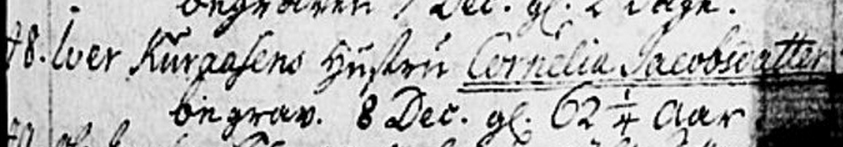 begraven 7 Dec. gl. 2 Dage.
48. Iver Kuraasens Hustru Cornelia Jacobsdatter
begrav. 8 Dec. gl. 62 1/4 Aar